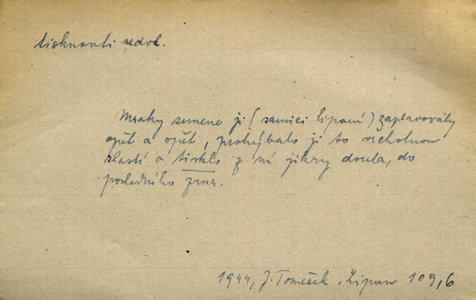 tisknouti nedok.
Mraky semene ji (samici lipaní) zaplavovaly
opět a opět, prohýbalo ji to vrcholnou
slastí a tisklo z ní jikry docela, do
posledního zrna.
1944, J. Tomeček, Lipan 109,6